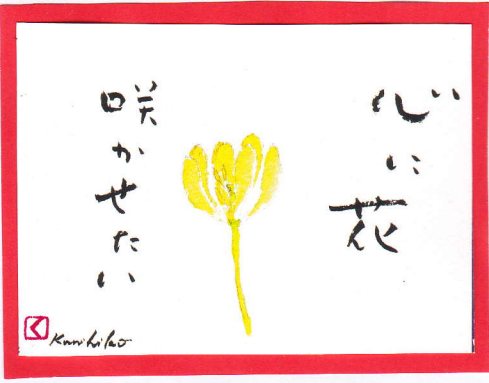 心に花
咲かせたい
Kunihiko